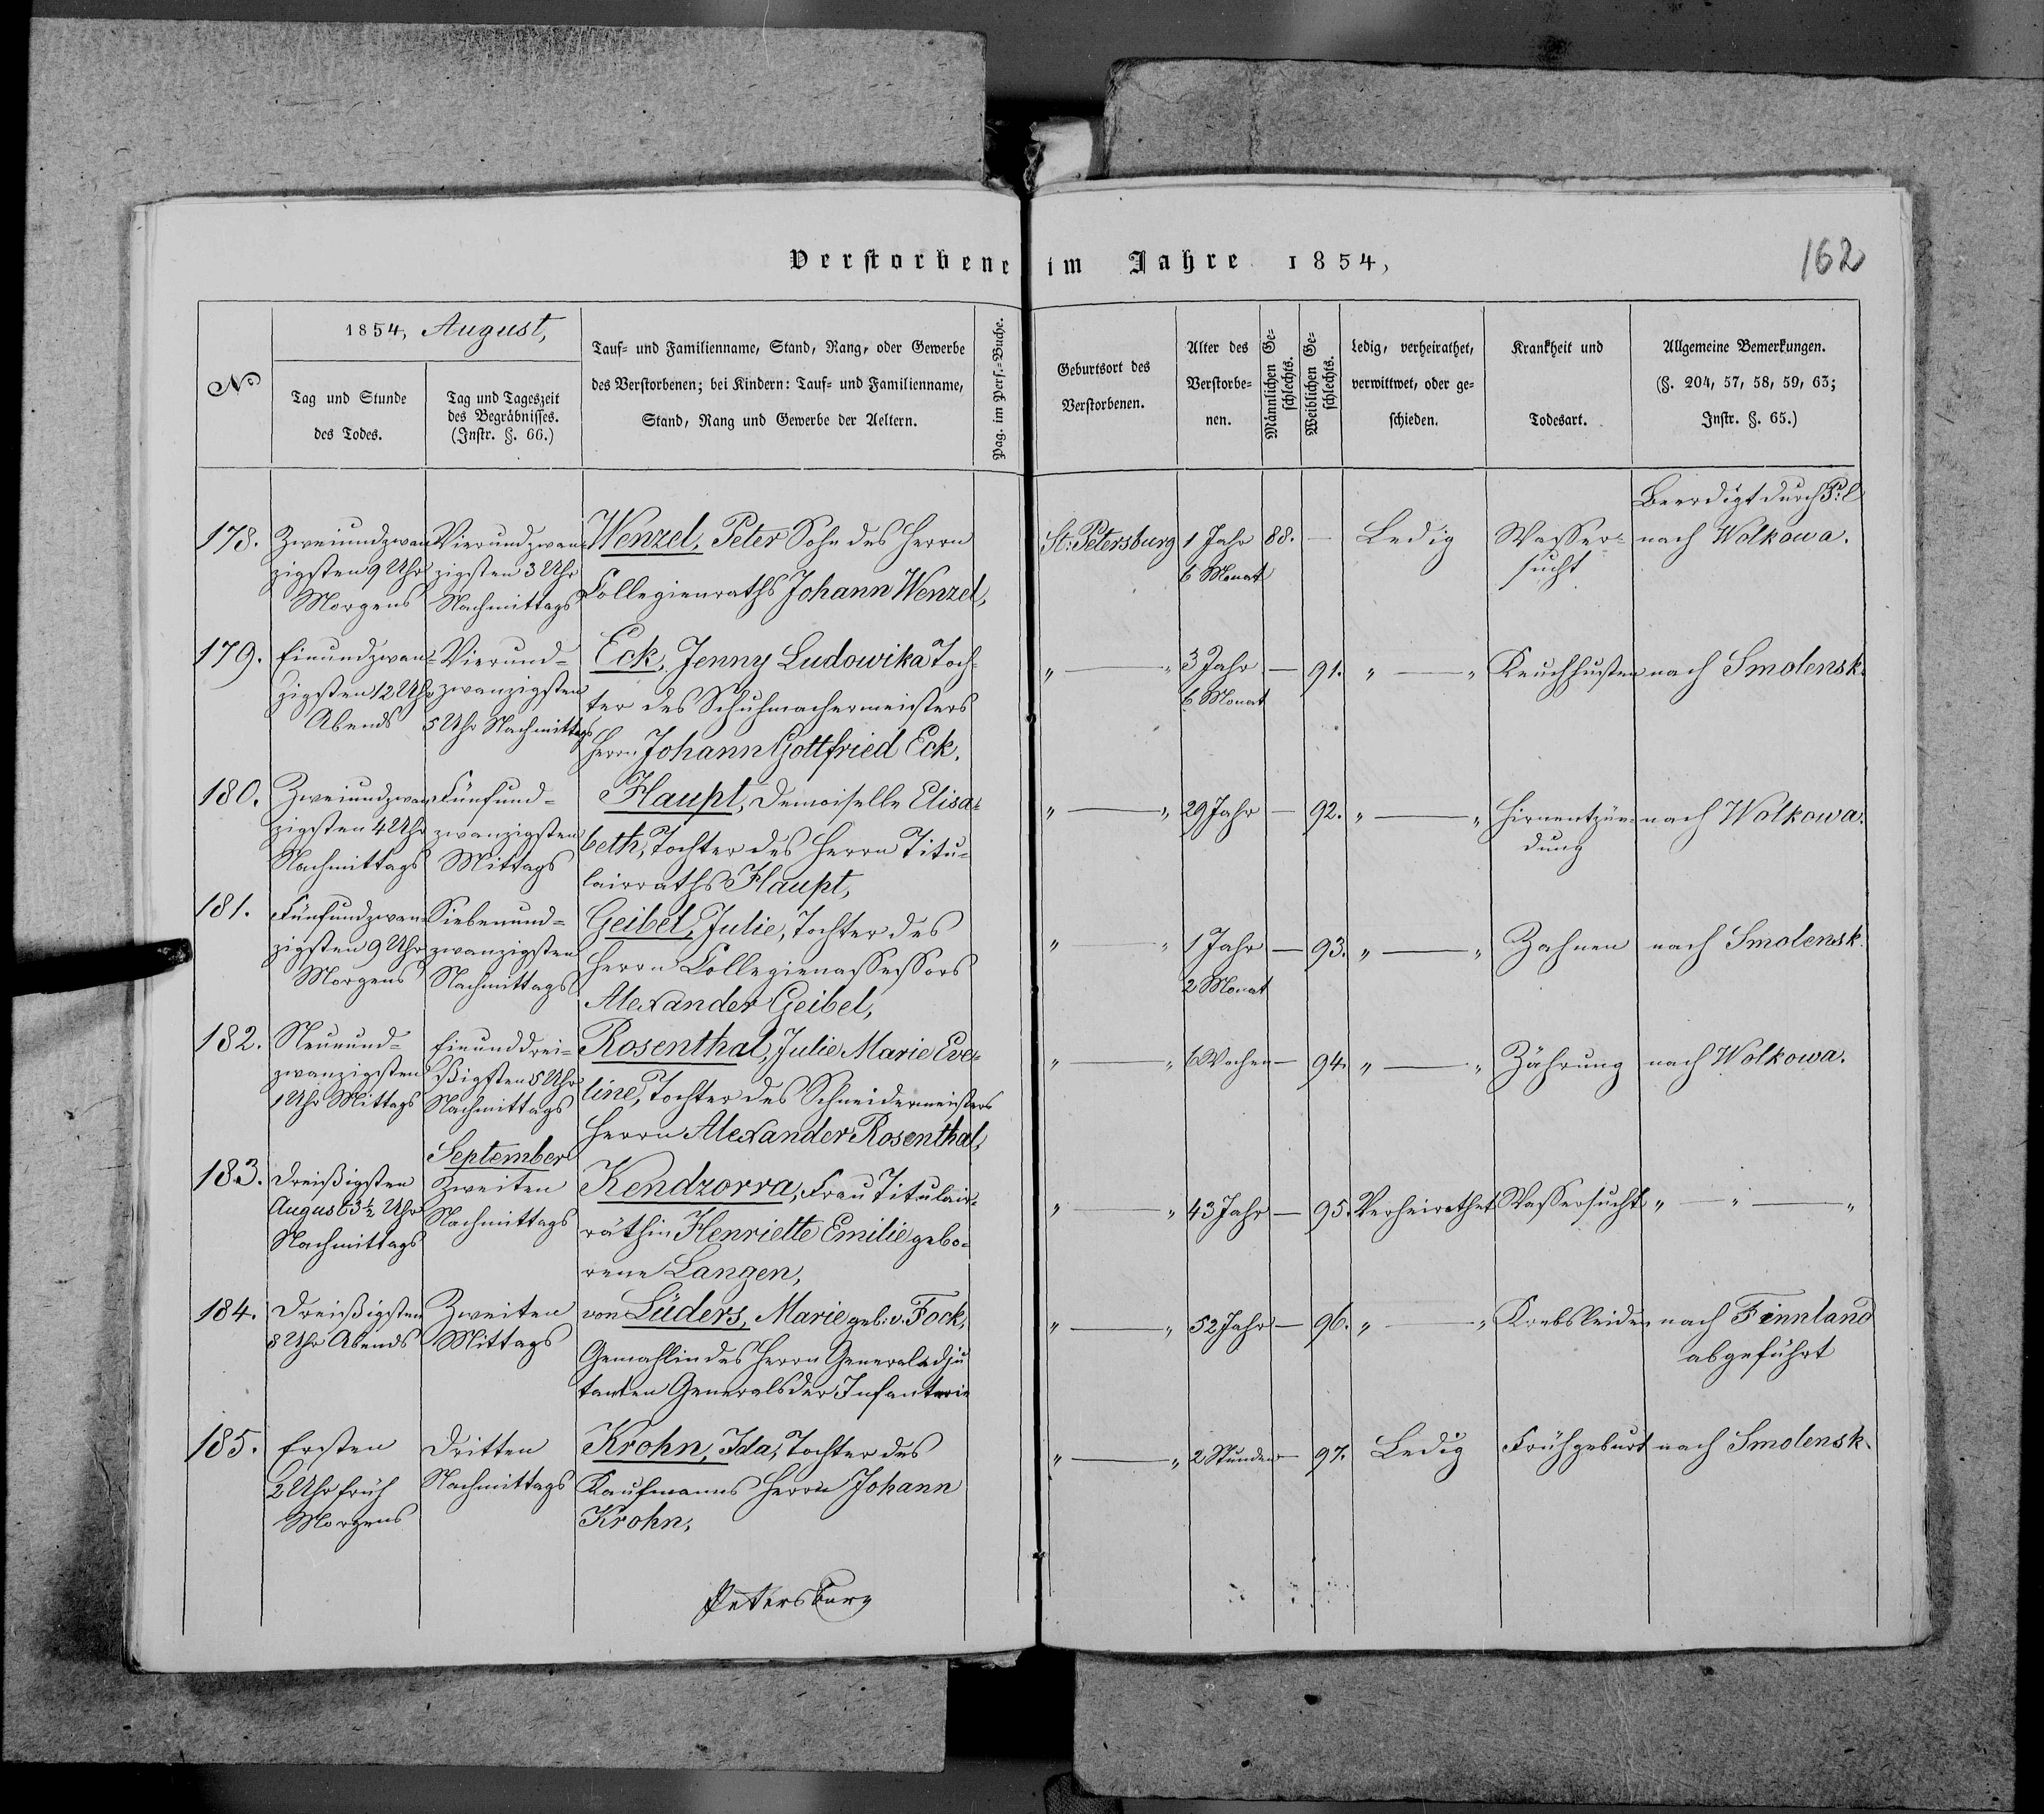 Verstorbene im Jahre 1854,
162
No
1854, August,
Tag und Stunde
des Todes.
Tag und Tageszeit
des Begräbnisses.
(Instr. §. 66.)
Tauf- und Familienname, Stand, Rang, oder Gewerbe
des Verstorbenen; bei Kindern: Tauf- und Familienname,
Stand, Rang und Gewerbe der Aeltern.
Pag. im Pers.-Buche.
Geburtsort des
Verstorbenen.
Alter des
Verstorbe-
nen.
Männlichen Ge-
schlechts.
Weiblichen Ge-
schlechts.
Ledig, verheirathet,
verwittwet, oder ge-
schieden.
Krankheit und
Todesart.
Allgemeine Bemerkungen.
(§. 204, 57, 58, 59, 63;
Instr. §. 65.)
178.
Zweiundzwan
zigsten 9 Uhr
Morgens
Vierundzwan-
zigsten 3 Uhr
Nachmittags
Wenzel, Peter Sohn des Herrn
Collegienraths Johann Wenzel,
St: Petersburg
1 Jahr
6 Monat
88. —
Ledig
Wasser-
sucht
Beerdigt durch P: l
nach Wolkowa.
179.
Einundzwan-
zigsten 12 Uhr
Abends
Vierund-
zwanzigsten
5 Uhr Nachmittags
Eck, Jenny Ludowika Toch-
ter des Schuhmachermeisters
Herrn Johann Gottfried Eck.
„ — „
3 Jahr
6 Monat
— 91.
„ — „
Keuchhusten
nach Smolensk.
180.
Zweiundzwan
zigsten 4 Uhr
Nachmittags
Fünfund-
zwanzigsten
Mittags
Haupt, Demoiselle Elisa-
beth, Tochter des Herrn Titu-
lairraths Haupt,
„ — „
29 Jahr
— 92.
„ — „
Hirnentzün-
dung
nach Wolkowa.
181.
Fünfundzwan-
zigsten 9 Uhr
Morgens
Siebenund-
zwanzigsten
Nachmittags
Geibel, Julie, Tochter des
Herrn Collegienassessors
Alexander Geibel,
„ — „
1 Jahr
2 Monat
— 93.
„ — „
Zahnen
nach Smolensk.
182.
Neunund-
zwanzigsten
1 Uhr Mittags
Einunddrei-
ßigsten 5 Uhr
Nachmittags
Rosenthal, Julie Marie Eve-
line, Tochter des Schneidermeisters
Herrn Alexander Rosenthal,
„ — „
6 Wochen
— 94.
„ — „
Zährung
nach Wolkowa.
183.
Dreißigsten
August 3½ Uhr
Nachmittags
September
Zweiten
Nachmittags
Kendzorra, Frau Titulair-
räthin Henriette Emilie gebo-
rene Langen,
„ — „
43 Jahr
— 95.
Verheirathet
Wassersucht
„ — „ — „
184.
Dreißigsten
8 Uhr Abends
Zweiten
Mittags
von Lüders, Marie geb: v. Fock,
Gemahlin des Herrn Generaladju
tanten Generals der Infanterie
„ — „
52 Jahr
— 96.
„ — „
Krebsleiden
nach Finnland
abgeführt
185.
Ersten
2 Uhr früh
Morgens
Dritten
Nachmittags
Krohn, Ida, Tochter des
Kaufmanns Herrn Johann
Krohn,
„ — „
2 Stunden
— 97.
Ledig
Frühgeburt
nach Smolensk.
Petersburg